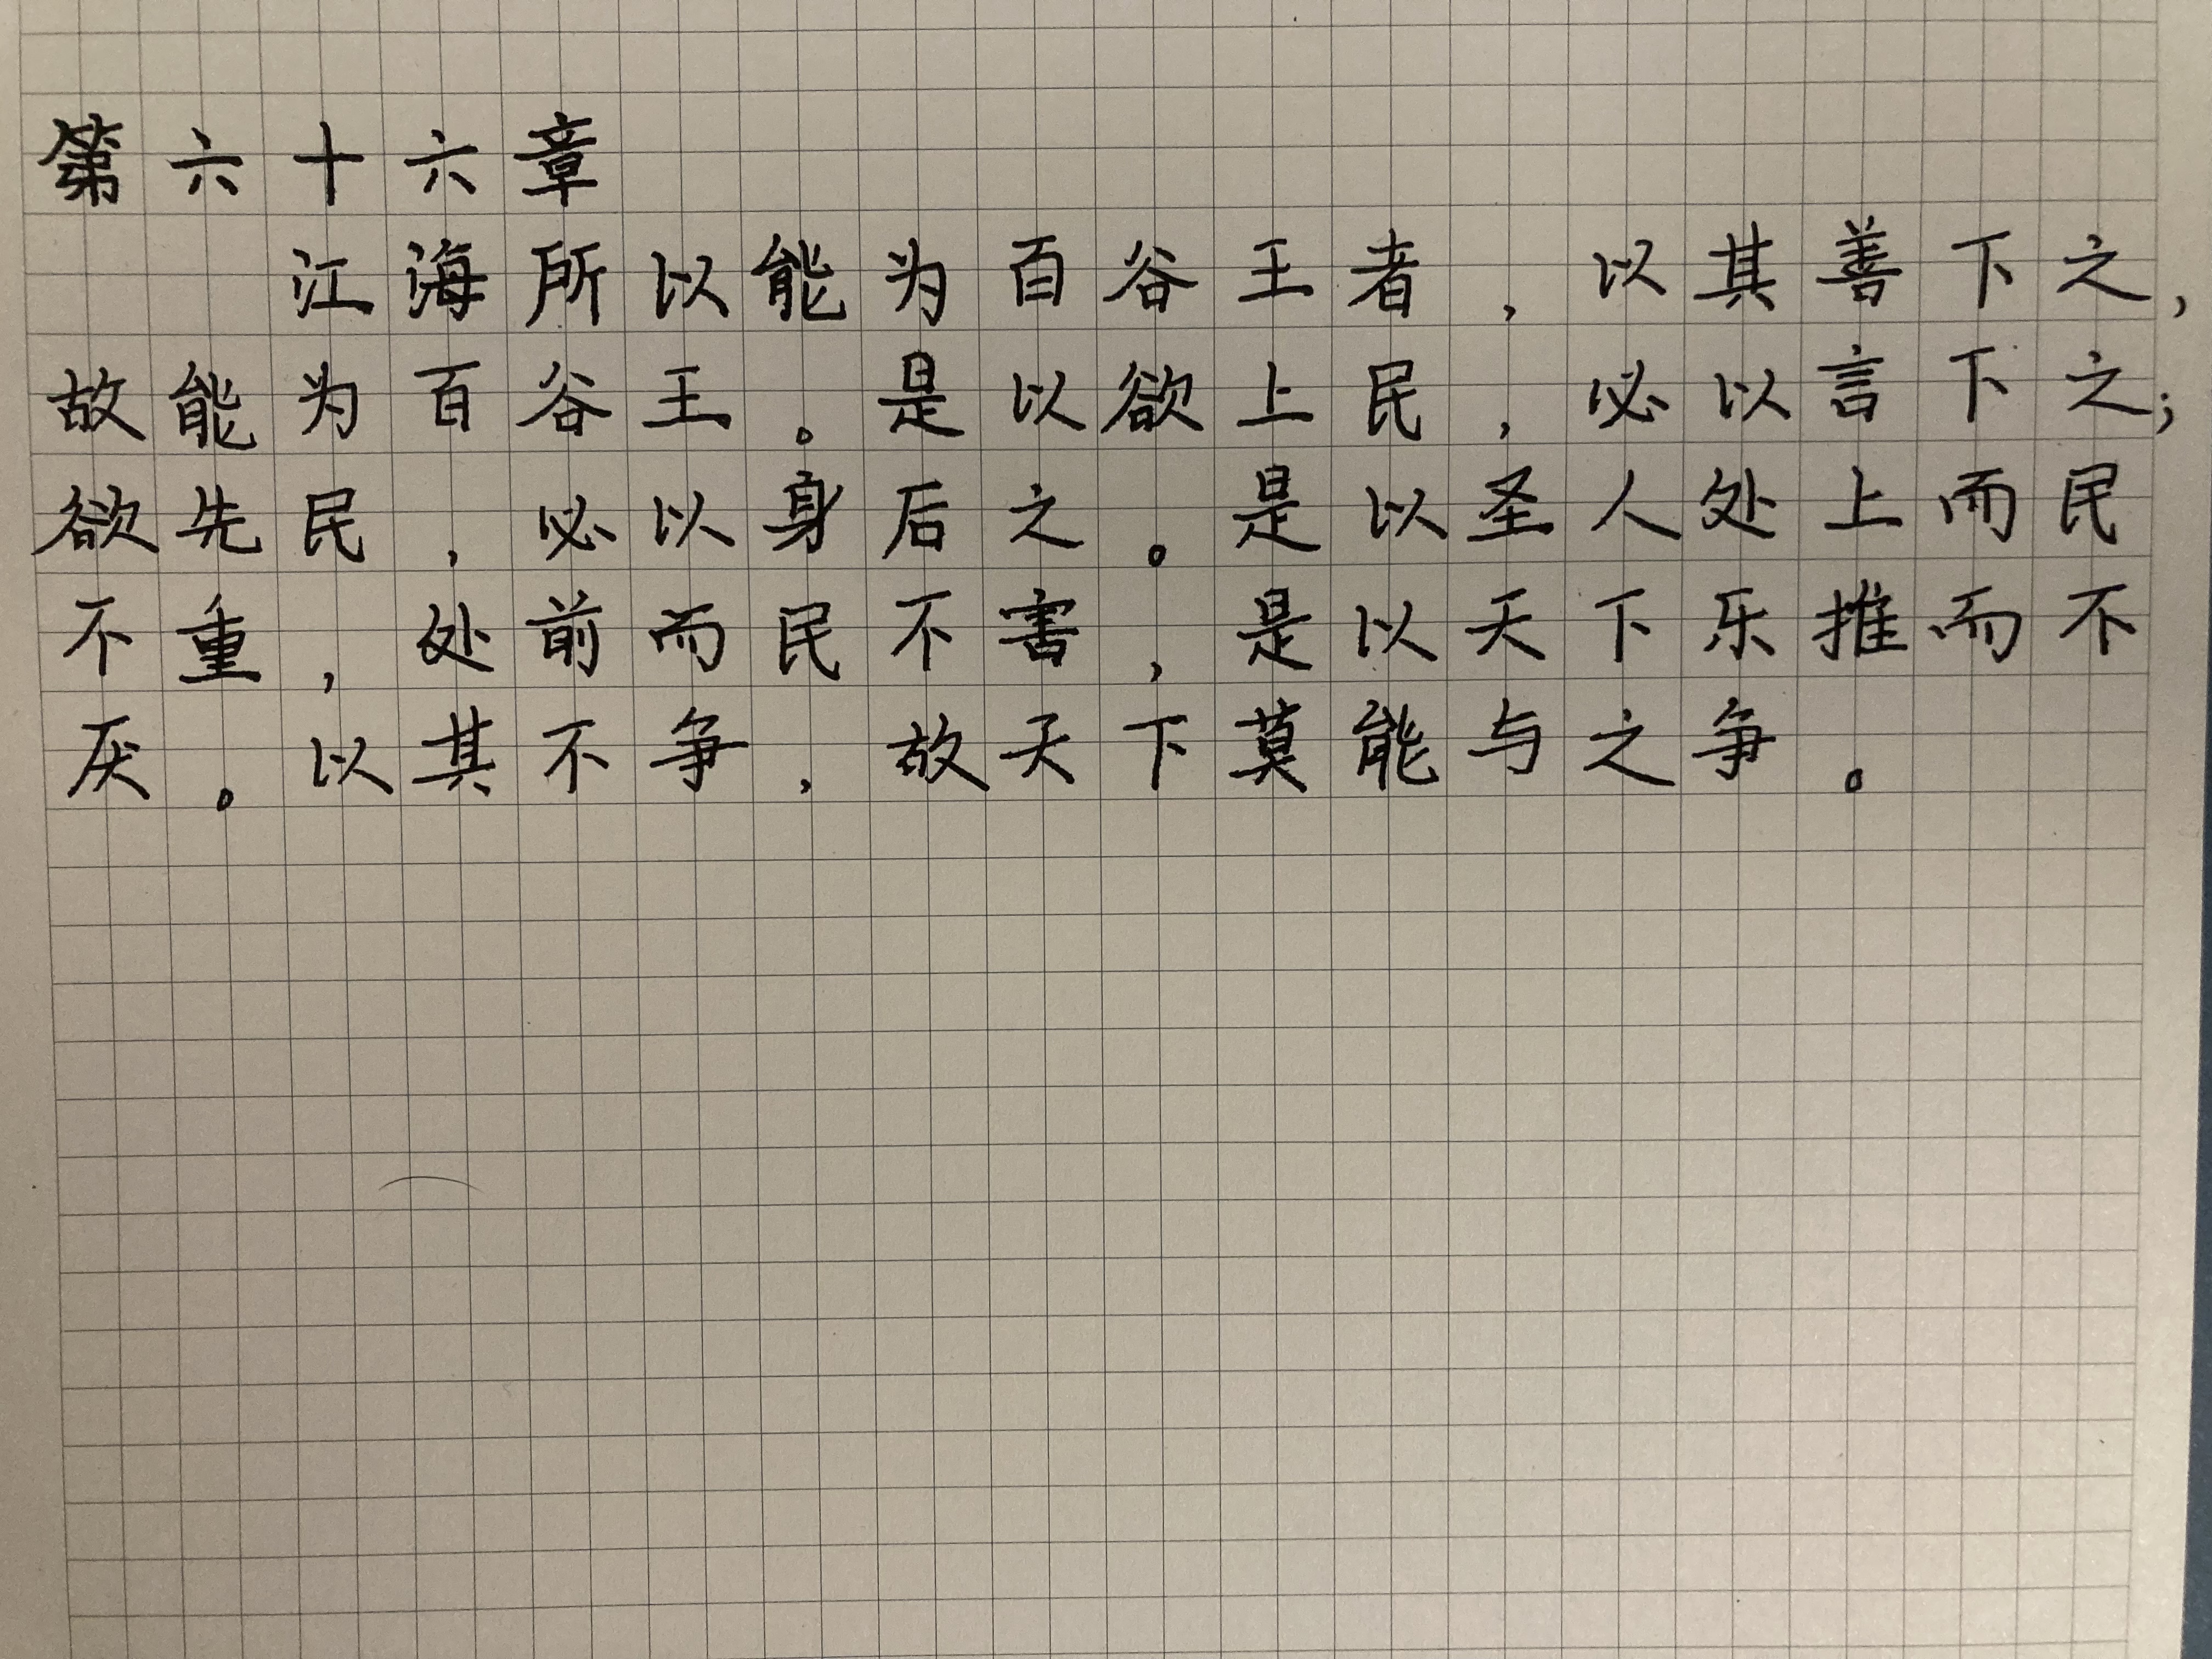 第六十六章
江海所以能为百谷王者，以其善下之，
故能为百谷王。是以欲上民，必以言下之；
欲先民，必以身后之。是以圣人处上而民
不重，处前而民不害，是以天下乐推而不
厌。以其不争，故天下莫能与之争。